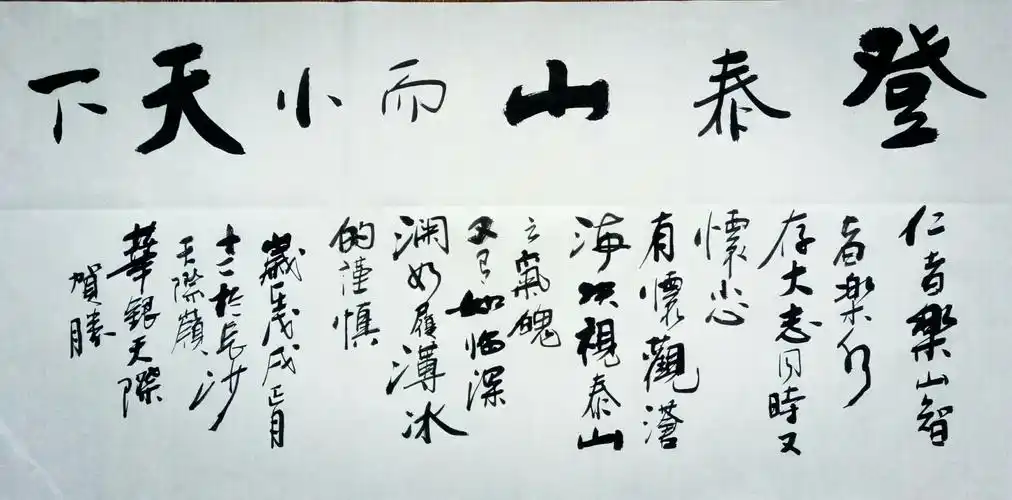 登泰山而小天下
仁者樂山智
者樂水
存大志同時又
懷小心
有懷觀滄
海以視泰山
之氣魄
又有如臨深
淵如履薄冰
的謹慎
歲在戊戌正月
十二於長沙
天際嶺
華銀天際
賀勝